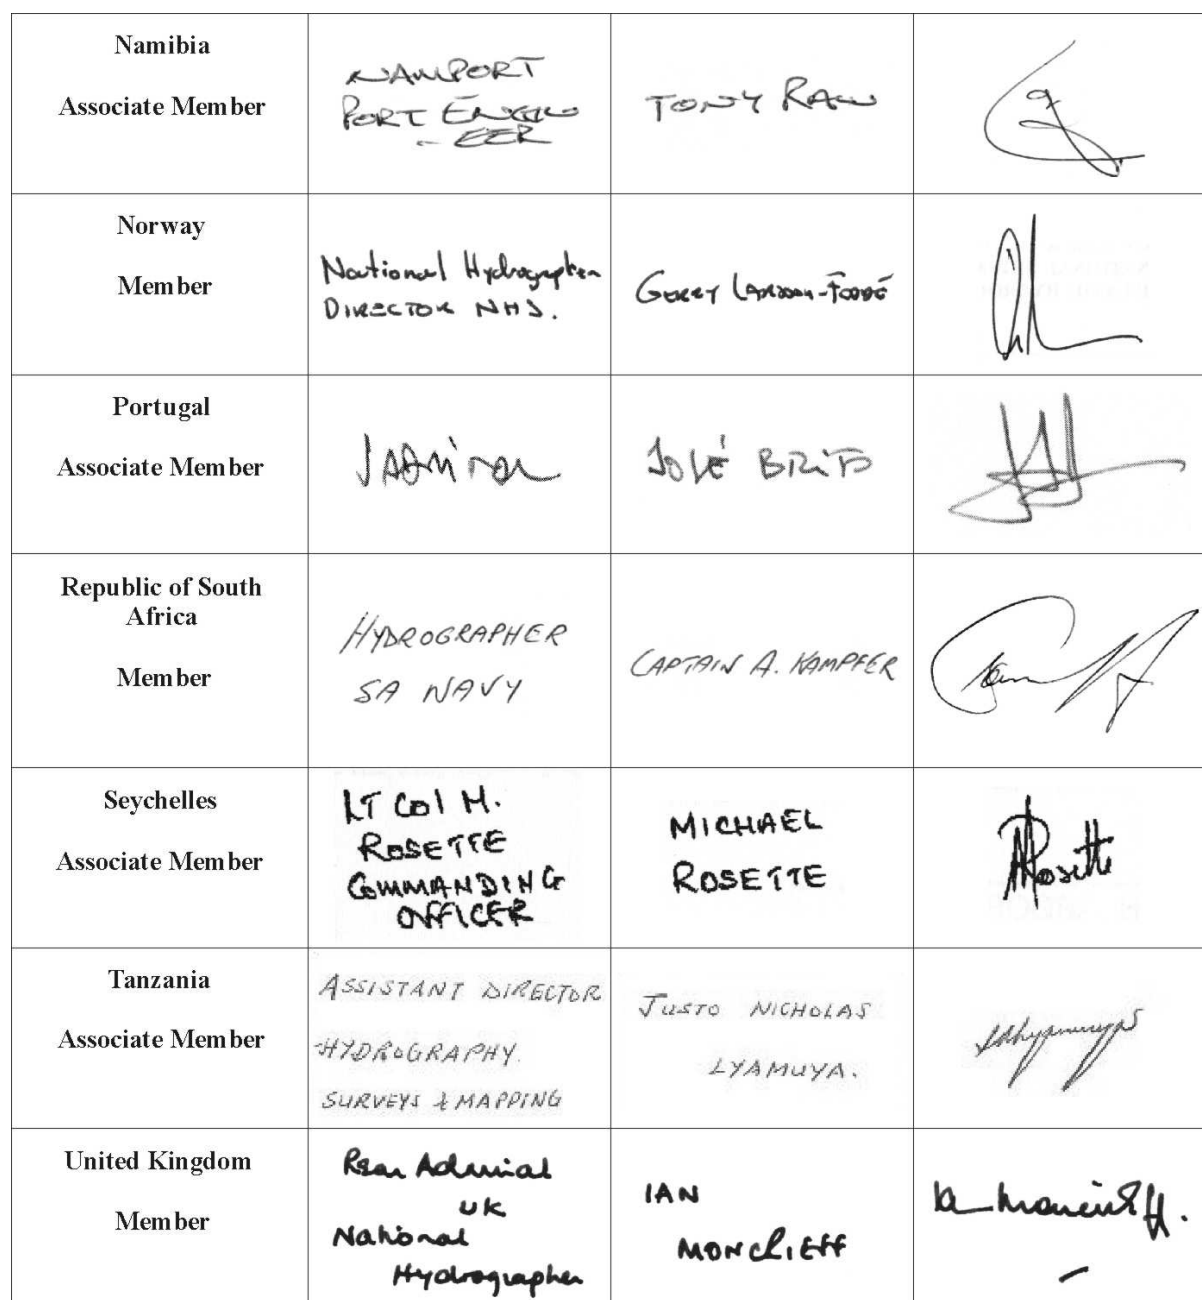 Namibia
Associate Member
NAMPORT
PORT ENGIN
- EER
TONY RAW
Norway
Member
National Hydrographer
DIRECTOR NHS.
GERRY LARSSON-FEDDE
Portugal
Associate Member
JOSÉ BRITO
Republic of South
Africa
Member
HYDROGRAPHER
SA NAVY
CAPTAIN A. KAMPFER
Seychelles
Associate Member
LT Col M.
ROSETTE
COMMANDING
OFFICER
MICHAEL
ROSETTE
MRosette
Tanzania
Associate Member
ASSISTANT DIRECTOR
HYDROGRAPHY.
SURVEYS & MAPPING
JUSTO NICHOLAS
LYAMUYA.
United Kingdom
Member
Rear Admiral
UK
National
Hydrographer
IAN
MONCRIEFF